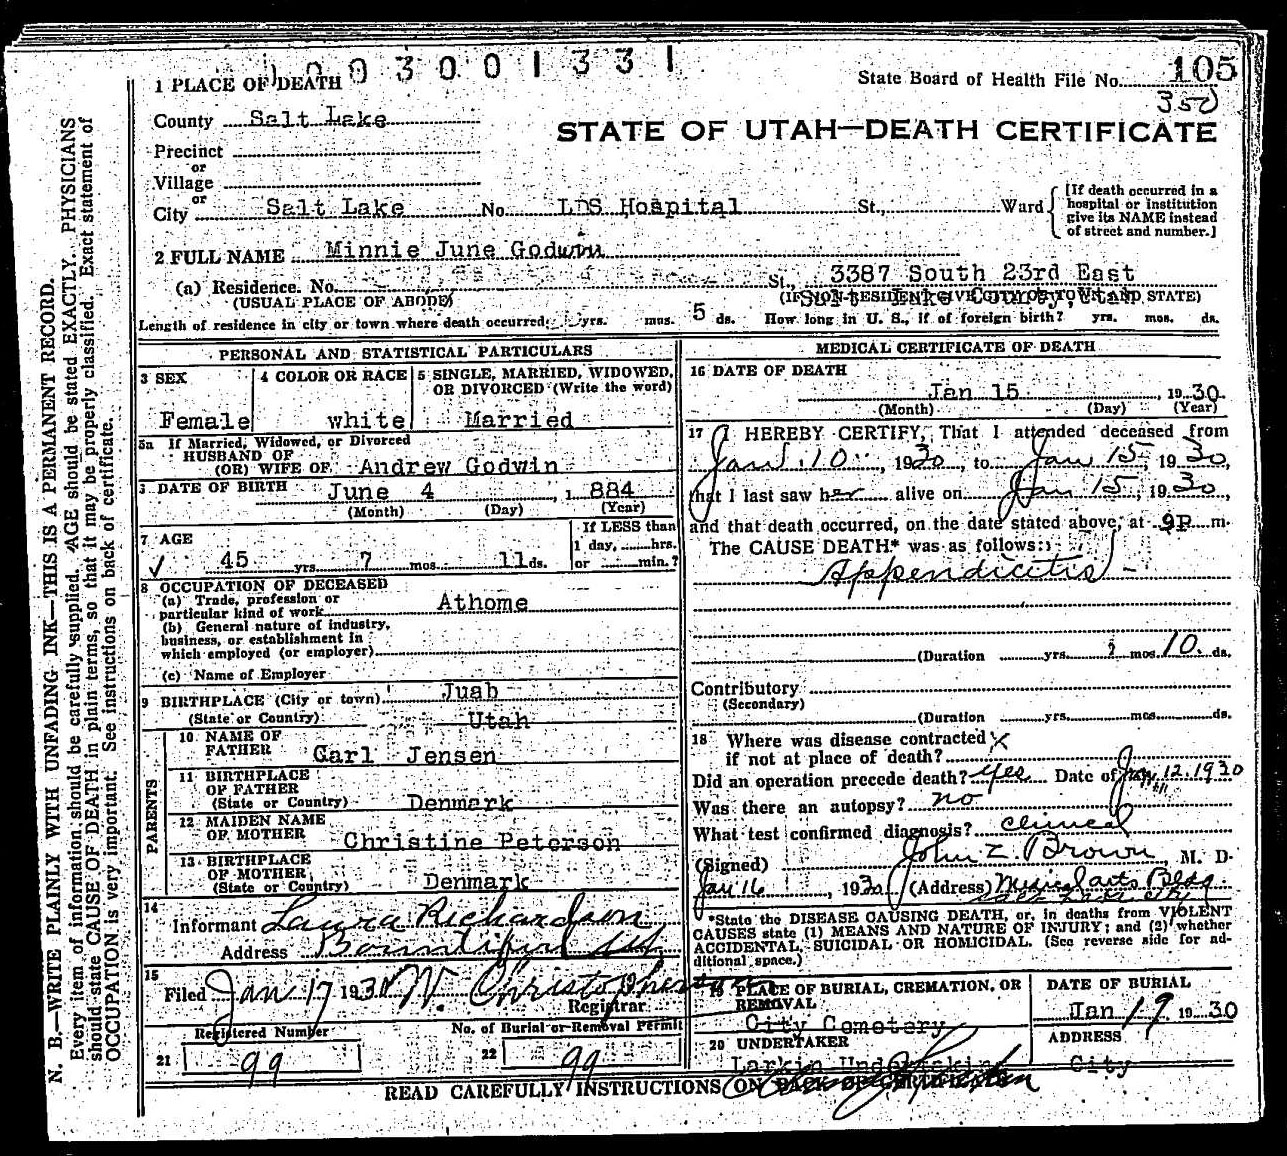 1003001331
1 PLACE OF DEATH
State Board of Health File No. 105
350
County Salt Lake
STATE OF UTAH—DEATH CERTIFICATE
Precinct
or
Village
or
City Salt Lake No. LDS Hospital St., Ward
[If death occurred in a
hospital or institution
give its NAME instead
of street and number.]
2 FULL NAME Minnie June Godwin
(a) Residence. No. St., 3387 South 23rd East
(USUAL PLACE OF ABODE) (IF NON-RESIDENT GIVE CITY OR TOWN AND STATE)
Salt Lake County, Utah
Length of residence in city or town where death occurred: yrs. mos. 5 ds. How long in U. S., if of foreign birth? yrs. mos. ds.
PERSONAL AND STATISTICAL PARTICULARS
3 SEX
Female
4 COLOR OR RACE
white
5 SINGLE, MARRIED, WIDOWED,
OR DIVORCED (Write the word)
Married
5a If Married, Widowed, or Divorced
HUSBAND OF
(OR) WIFE OF Andrew Godwin
DATE OF BIRTH June 4, 1884
(Month) (Day) (Year)
7 AGE
45 yrs. 7 mos. 11 ds.
If LESS than
1 day, hrs.
or min.?
8 OCCUPATION OF DECEASED
(a) Trade, profession or
particular kind of work Athome
(b) General nature of industry,
business, or establishment in
which employed (or employer)
(c) Name of Employer
9 BIRTHPLACE (City or town) Juab
(State or Country) Utah
PARENTS
10 NAME OF
FATHER Carl Jensen
11 BIRTHPLACE
OF FATHER
(State or Country) Denmark
12 MAIDEN NAME
OF MOTHER Christine Peterson
13 BIRTHPLACE
OF MOTHER
(State or Country) Denmark
14
Informant Laura Richardson
Address Bountiful Ut
15
Filed Jan 17 1930 W. Christopherson
Registrar
Registered Number
21 99
No. of Burial or Removal Permit
22 99
MEDICAL CERTIFICATE OF DEATH
16 DATE OF DEATH
Jan 15, 1930
(Month) (Day) (Year)
17 I HEREBY CERTIFY, That I attended deceased from
Jan. 10, 1930, to Jan 15, 1930,
that I last saw her alive on Jan 15, 1930,
and that death occurred, on the date stated above, at 9P m.
The CAUSE DEATH* was as follows:
Appendicitis
(Duration yrs. mos. 10 ds.
Contributory
(Secondary)
(Duration yrs. mos. ds.
18 Where was disease contracted
if not at place of death?
Did an operation precede death? yes Date of Jan. 12. 1930
Was there an autopsy? no
What test confirmed diagnosis? clinical
(Signed) John Z. Brown, M. D.
Jan 16, 1930 (Address) Medical arts Bldg
Salt Lake City
*State the DISEASE CAUSING DEATH, or, in deaths from VIOLENT
CAUSES state (1) MEANS AND NATURE OF INJURY; and (2) whether
ACCIDENTAL, SUICIDAL OR HOMICIDAL. (See reverse side for ad-
ditional space.)
19 PLACE OF BURIAL, CREMATION, OR
REMOVAL
City Cemetery
DATE OF BURIAL
Jan 19 1930
20 UNDERTAKER
Larkin Undertaking
ADDRESS
City
READ CAREFULLY INSTRUCTIONS ON BACK OF CERTIFICATE
N. B.—WRITE PLAINLY WITH UNFADING INK—THIS IS A PERMANENT RECORD.
Every item of information should be carefully supplied. AGE should be stated EXACTLY. PHYSICIANS
should state CAUSE OF DEATH in plain terms, so that it may be properly classified. Exact statement of
OCCUPATION is very important. See instructions on back of certificate.